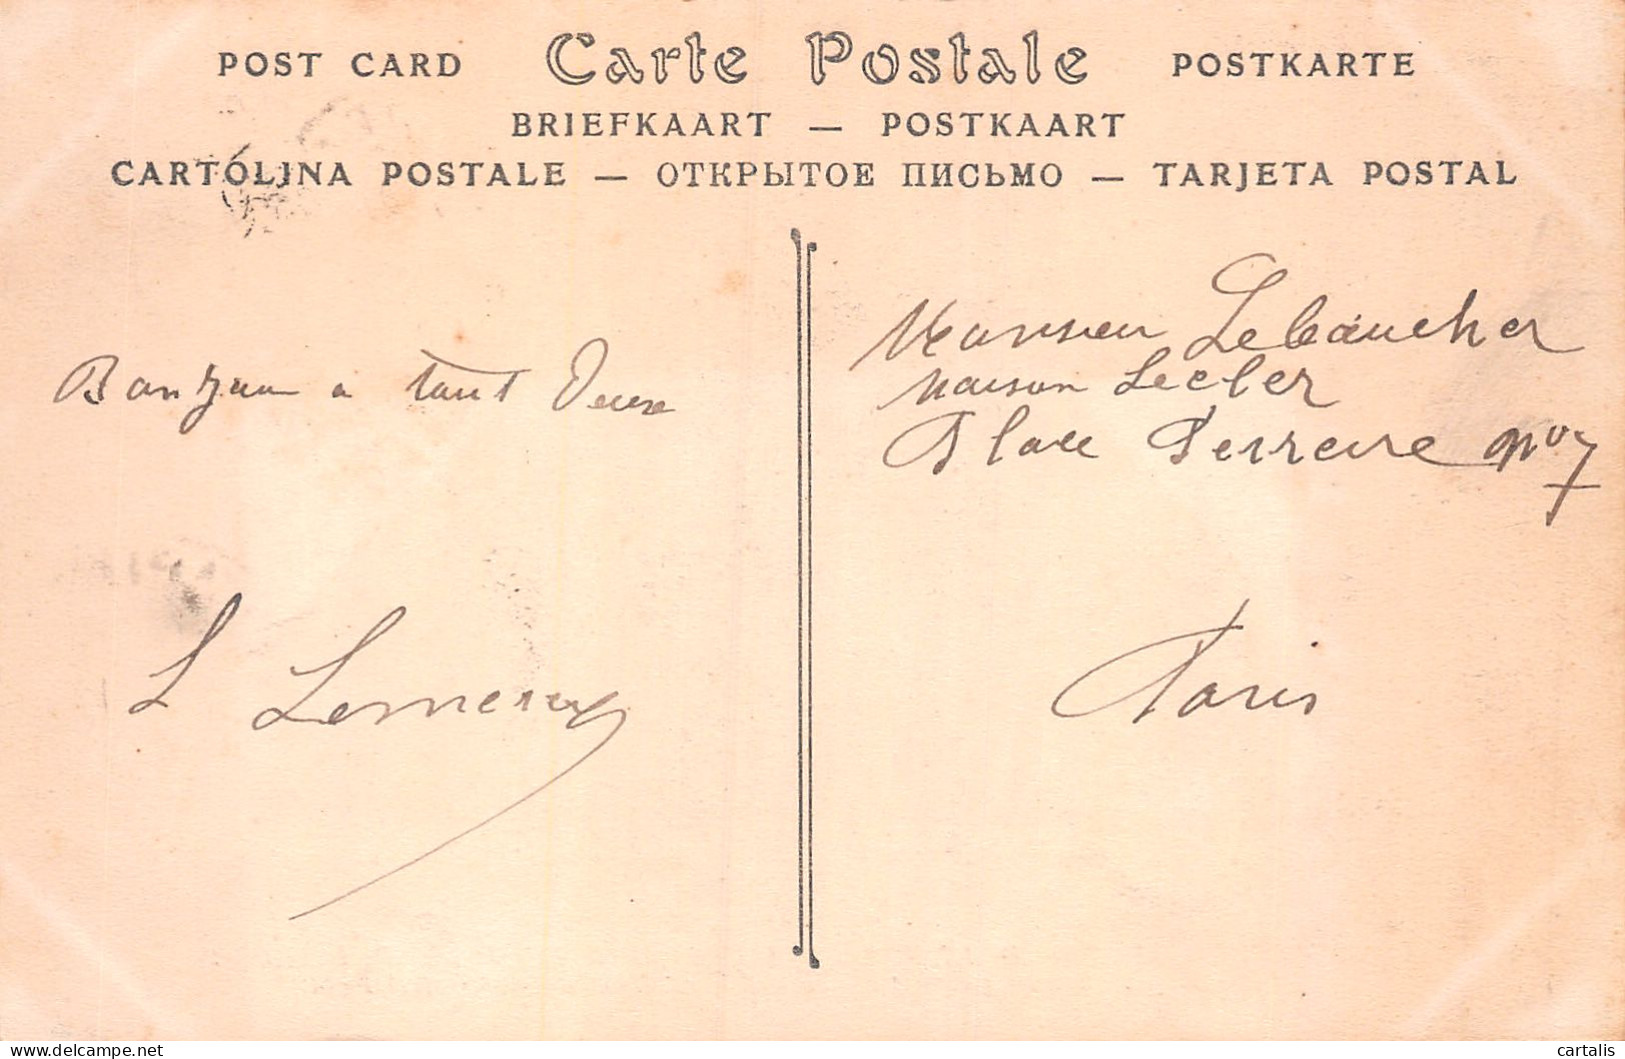 POST CARD Carte Postale POSTKARTE
BRIEFKAART — POSTKAART
CARTOLINA POSTALE — ОТКРЫТОЕ ПИСЬМО — TARJETA POSTAL
Bonjour a tout Deux
L Lemeray
Monsieur Lebaucher
maison Lecler
Place Perreire No 7
Paris
cartalis